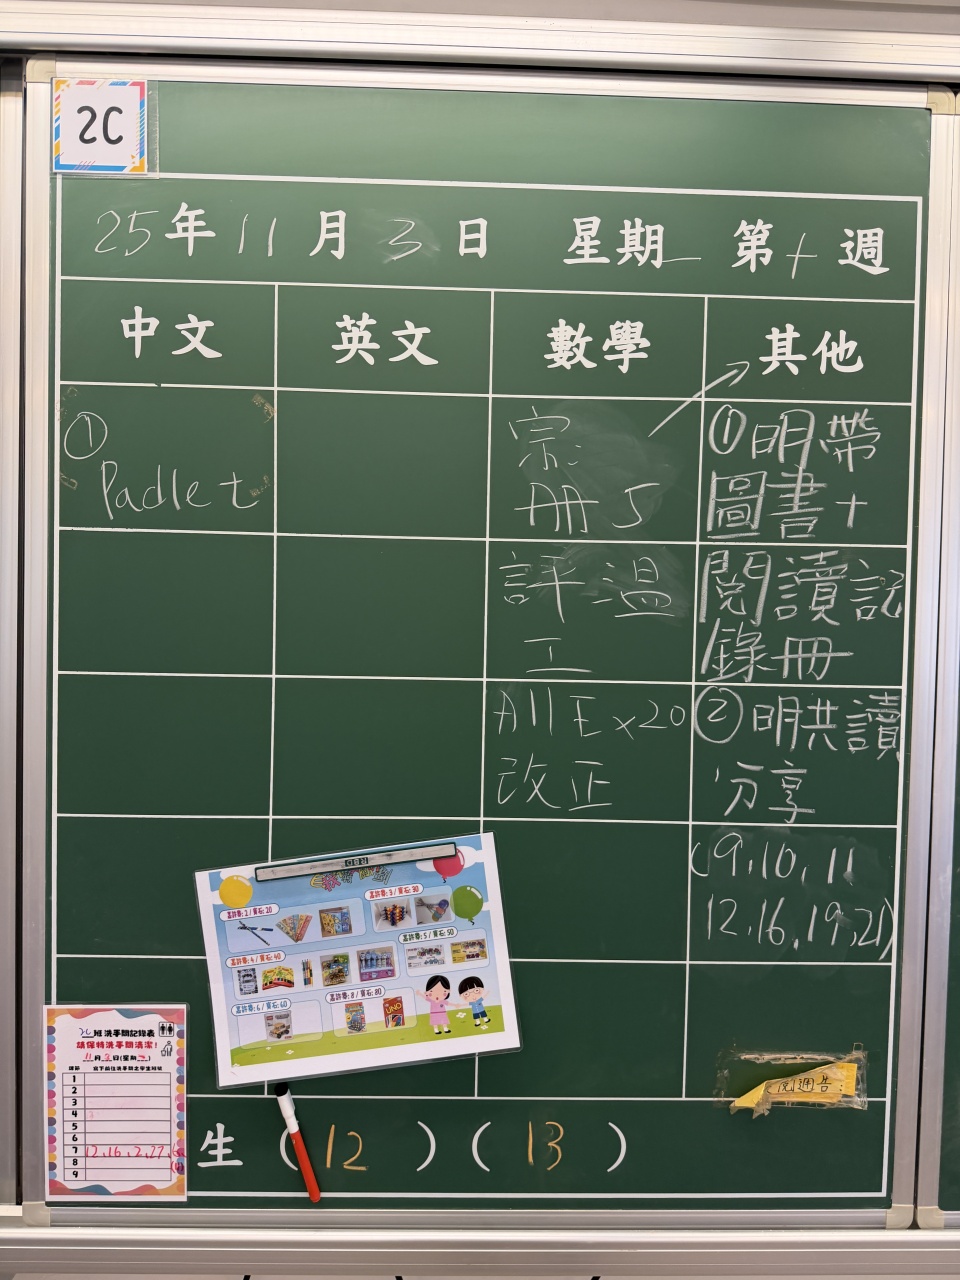 2C
25年11月3日 星期一 第十週
中文 英文 數學 其他
①
Padlet
宗:
冊 5
評溫
工
All E x20
改正
①明帶
圖書+
閱讀記
錄冊
②明共讀
分享
(9,10,11
12,16,19,21)
2/貼紙:20
3/貼紙:30
4/貼紙:40
5/貼紙:50
6/貼紙:60
8/貼紙:80
UNO
2C班洗手間記錄表
請保持洗手間清潔!
11月3日(星期一)
1
2
3
4
5
6
7 12,16,2,27,
8
9
閱通告:
生 (12) (13)